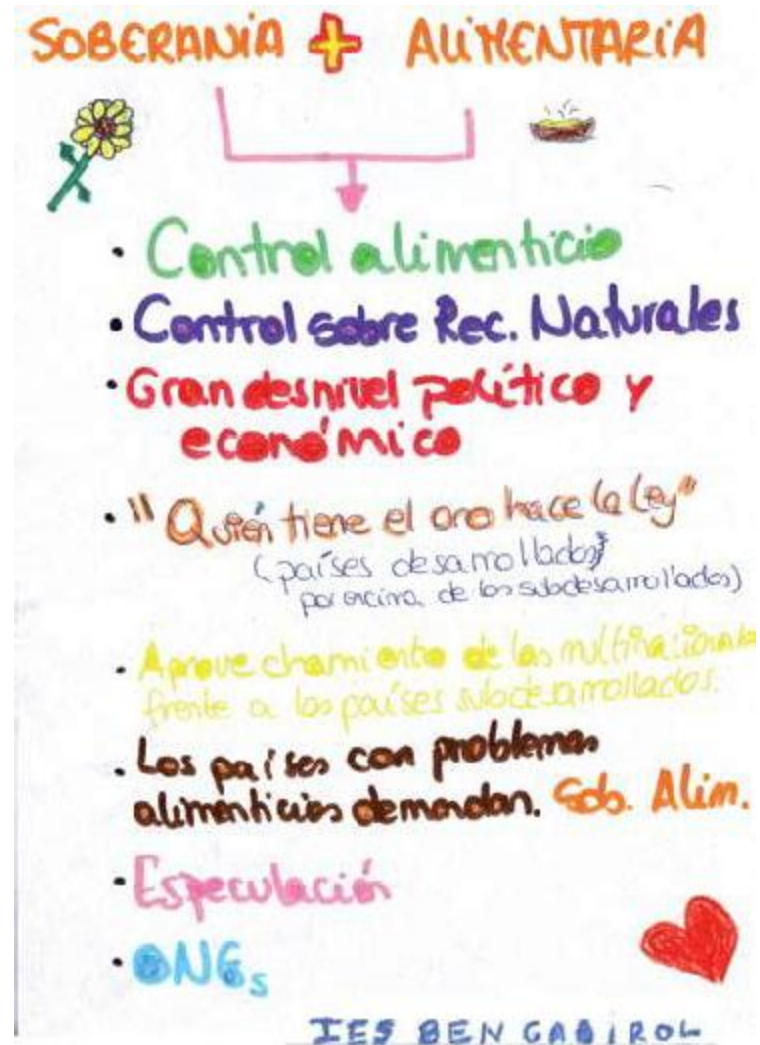 SOBERANIA + ALIMENTARIA
· Control alimenticio
· Control sobre Rec. Naturales
· Gran desnivel político y
económico
· "Quién tiene el oro hace la ley"
(países desarrollados
por encima de los subdesarrollados)
· Aprovechamiento de las multinacionales
frente a los países subdesarrollados.
· Los países con problemas
alimenticios demandan. Sob. Alim.
· Especulación
· ONGs
IES BEN GABIROL